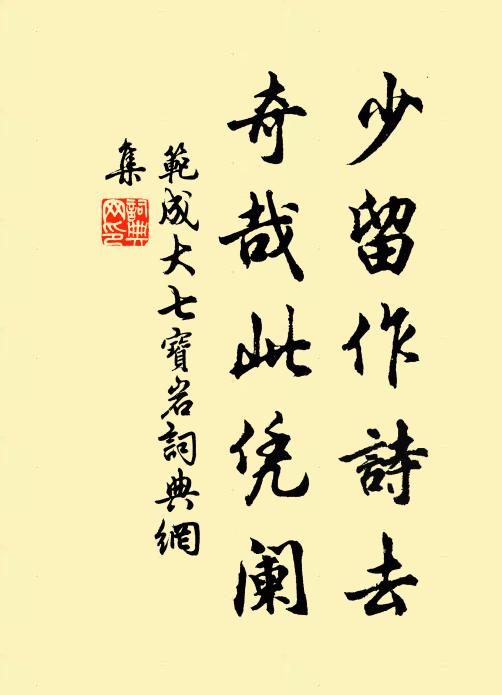 少留作詩去
奇哉此凭阑
範成大七寶岩詞典網
集
詞典
网印